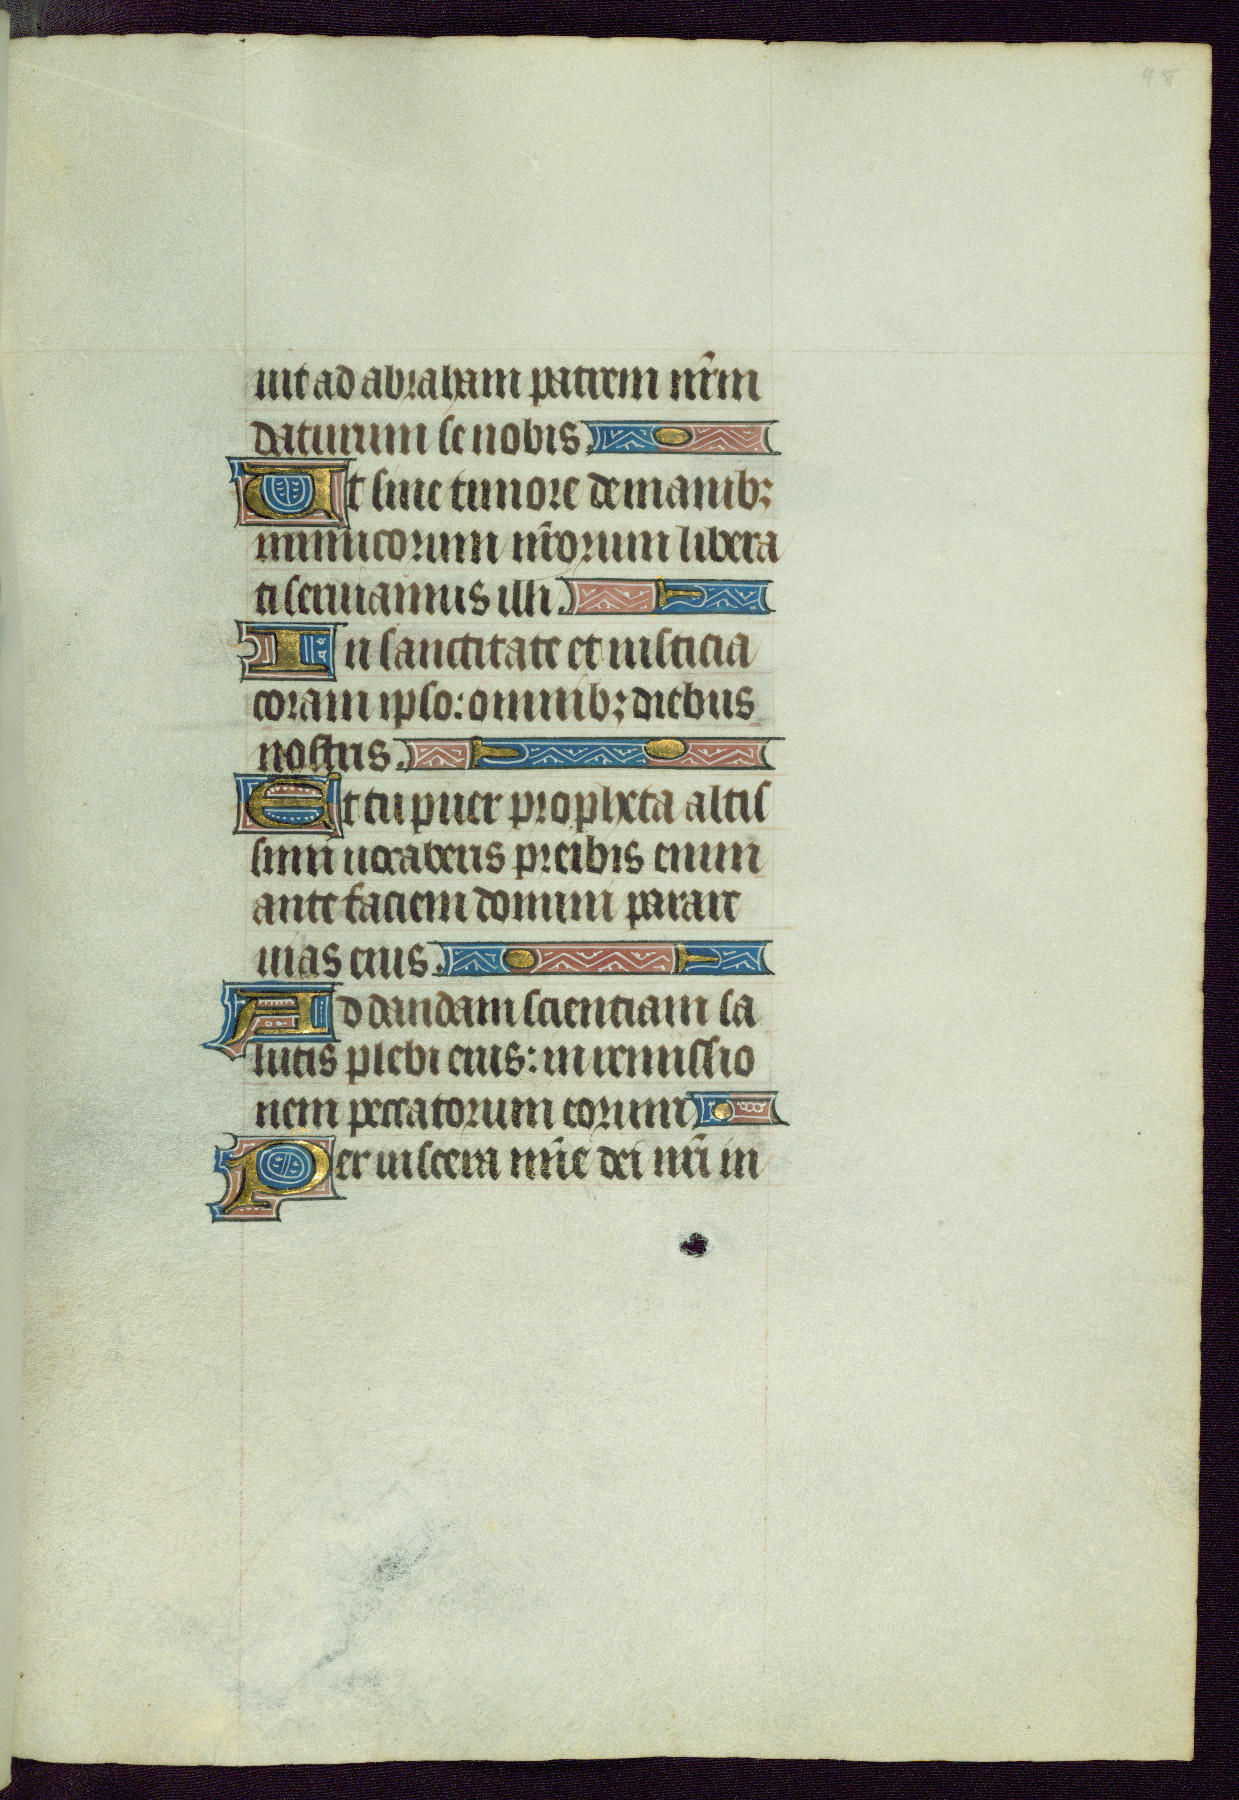 48
uit ad abraham patrem nr̄m
daturum se nobis.
Ut sine timore de manib;
inimicorum nr̄orum libera
ti seruiamus illi.
In sanctitate et iusticia
coram ipso: omnib; diebus
nostris.
Et tu puer propheta altis
simi uocaberis preibis enim
ante faciem domini parare
uias eius.
Ad dandam scientiam sa
lutis plebi eius: in remissio
nem peccatorum eorum
Per uiscera mīe dei nr̄i in